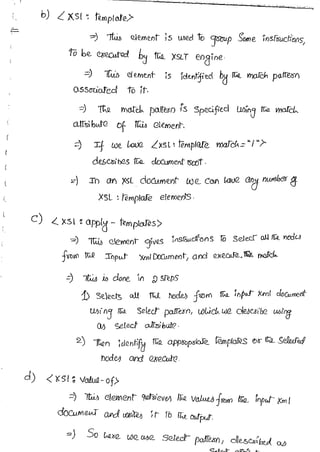 b) <xsl : template>
=> This element is used to group some instructions,
to be executed by the XSLT engine.
=> This element is identified by the match pattern
associated to it.
=> The match pattern is specified using the match
attribute of this element.
=> If we have <xsl : template match="/">
describes the document root.
=> In an XSL document we can have any number of
XSL : template elements.
c) < xsl : apply - templates>
=> This element gives instructions to select all the nodes
from the Input xml Document, and execute, the match
=> This is done in 2 steps
1) Selects all the nodes from the input xml document
using the select pattern, which we describe using
as select attribute.
2) Then identify the appropriate templates or the selected
nodes and execute.
d) < xsl : value-of>
=> This element retrieves the values from the input xml
document and writes it to the output.
=> So here we use select pattern, described as